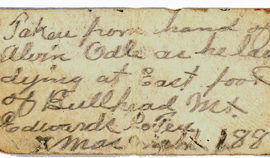 Taken from hand of
Alvin Odle as he lay
dying at East foot
of Bullhead Mt.
Edwards
Mac 188